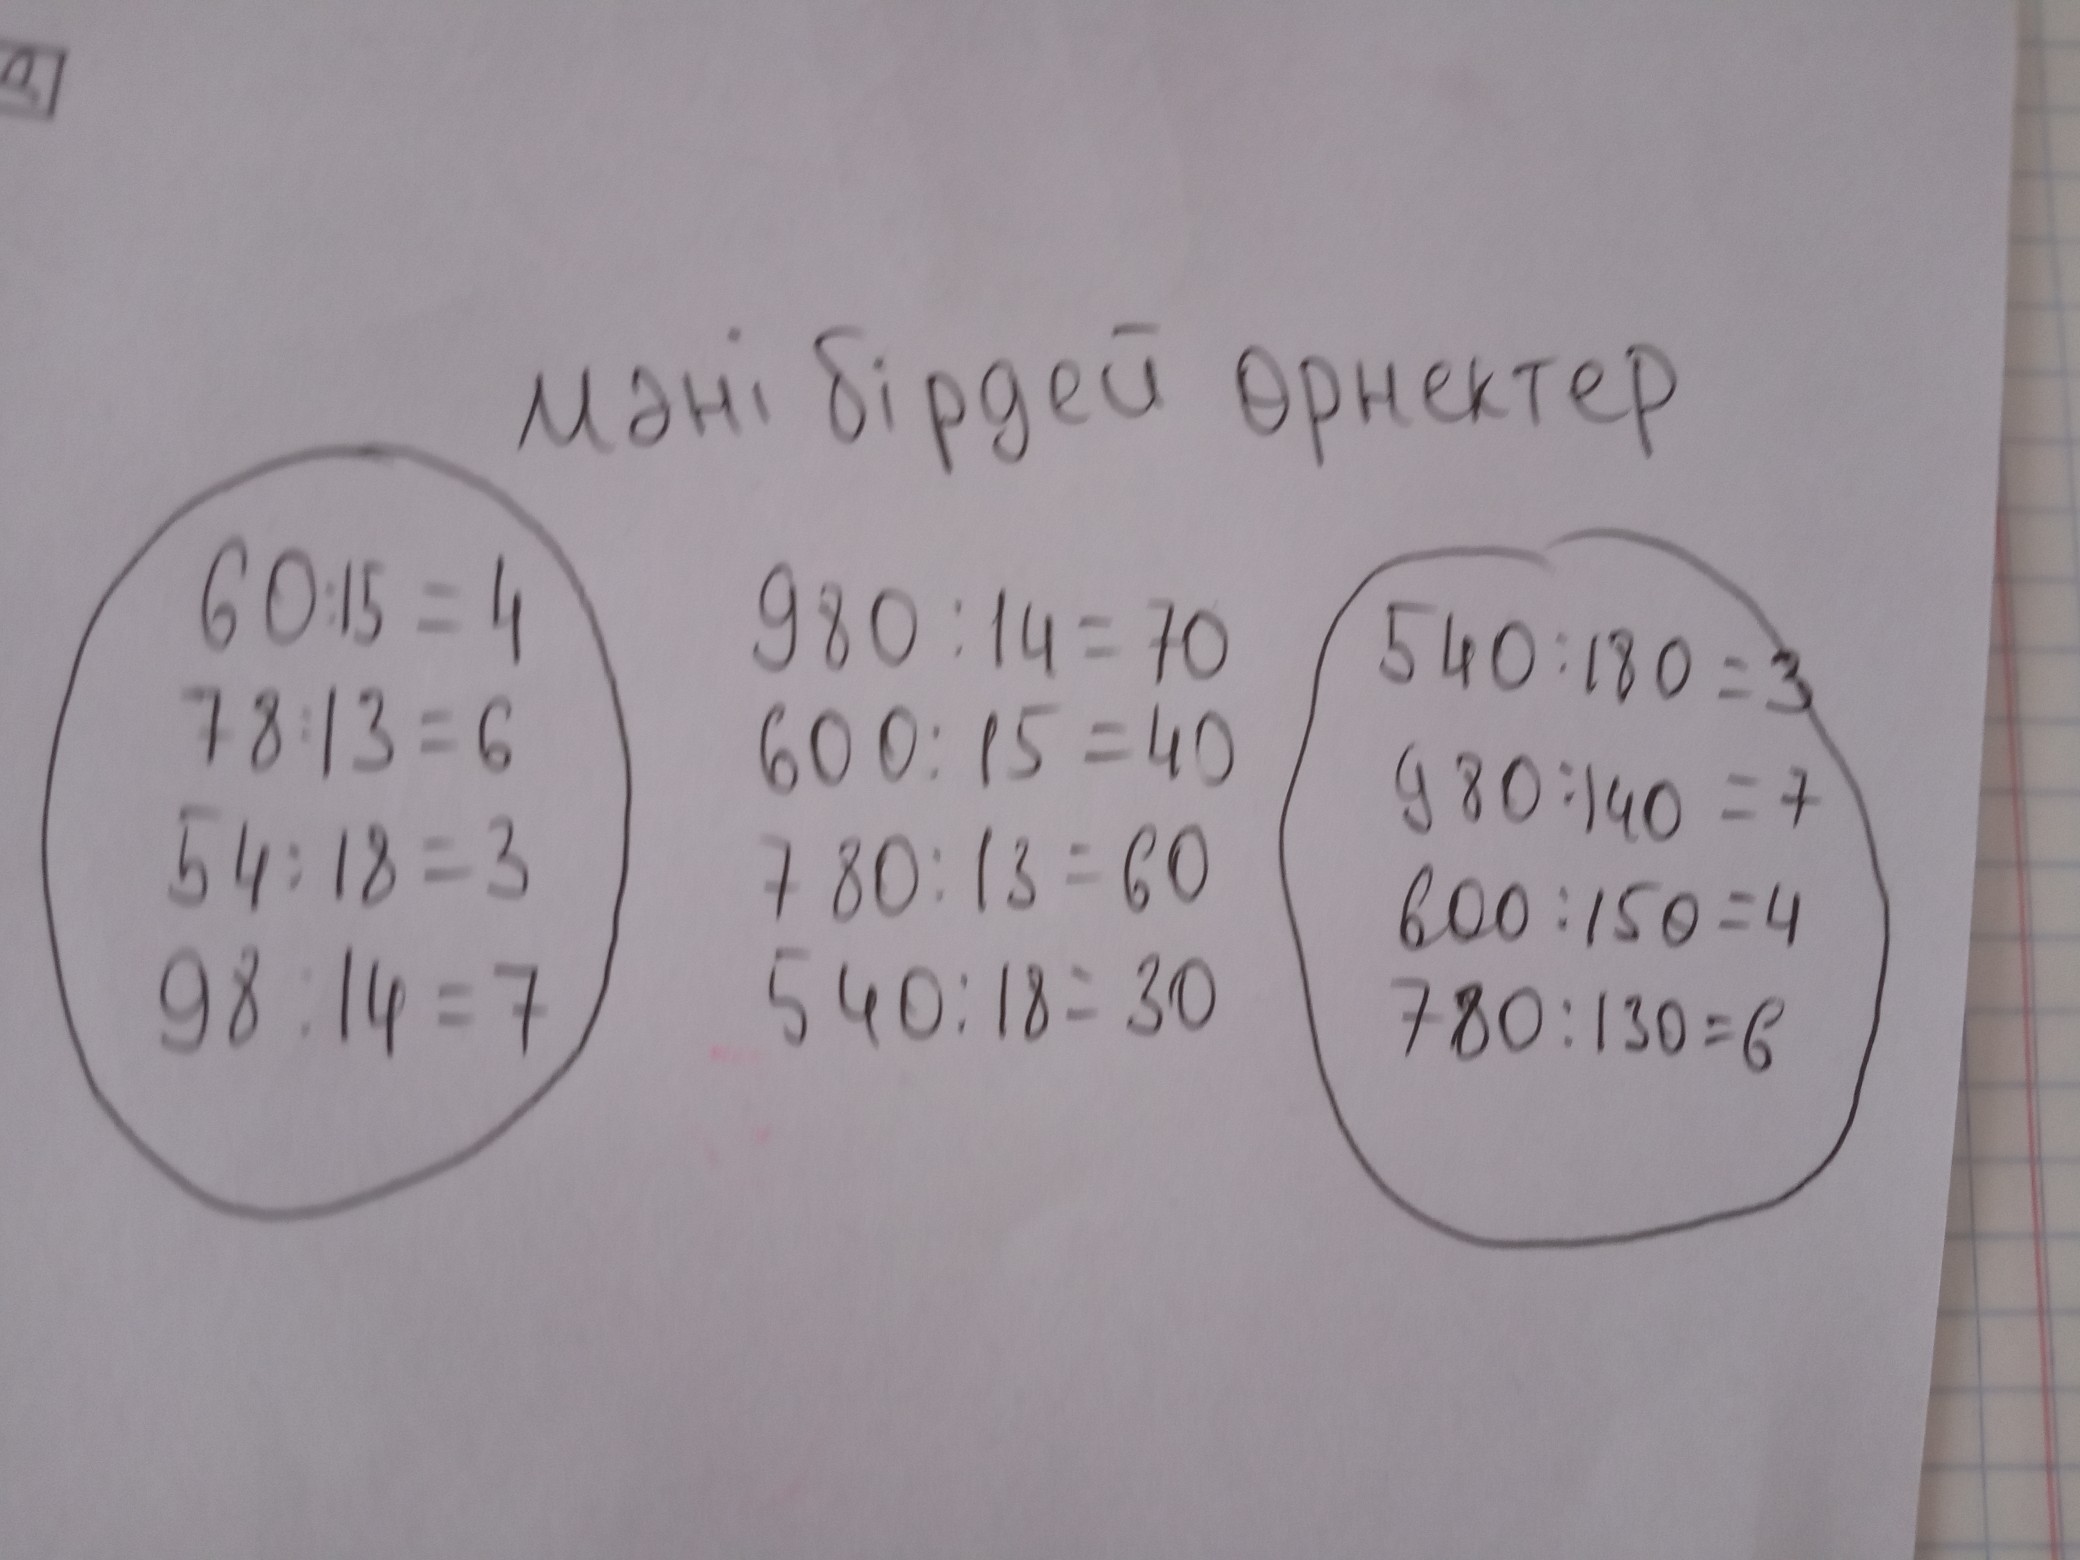 Мәні бірдей өрнектер
60:15=4
78:13=6
54:18=3
98:14=7
980:14=70
600:15=40
780:13=60
540:18=30
540:180=3
980:140=7
600:150=4
780:130=6